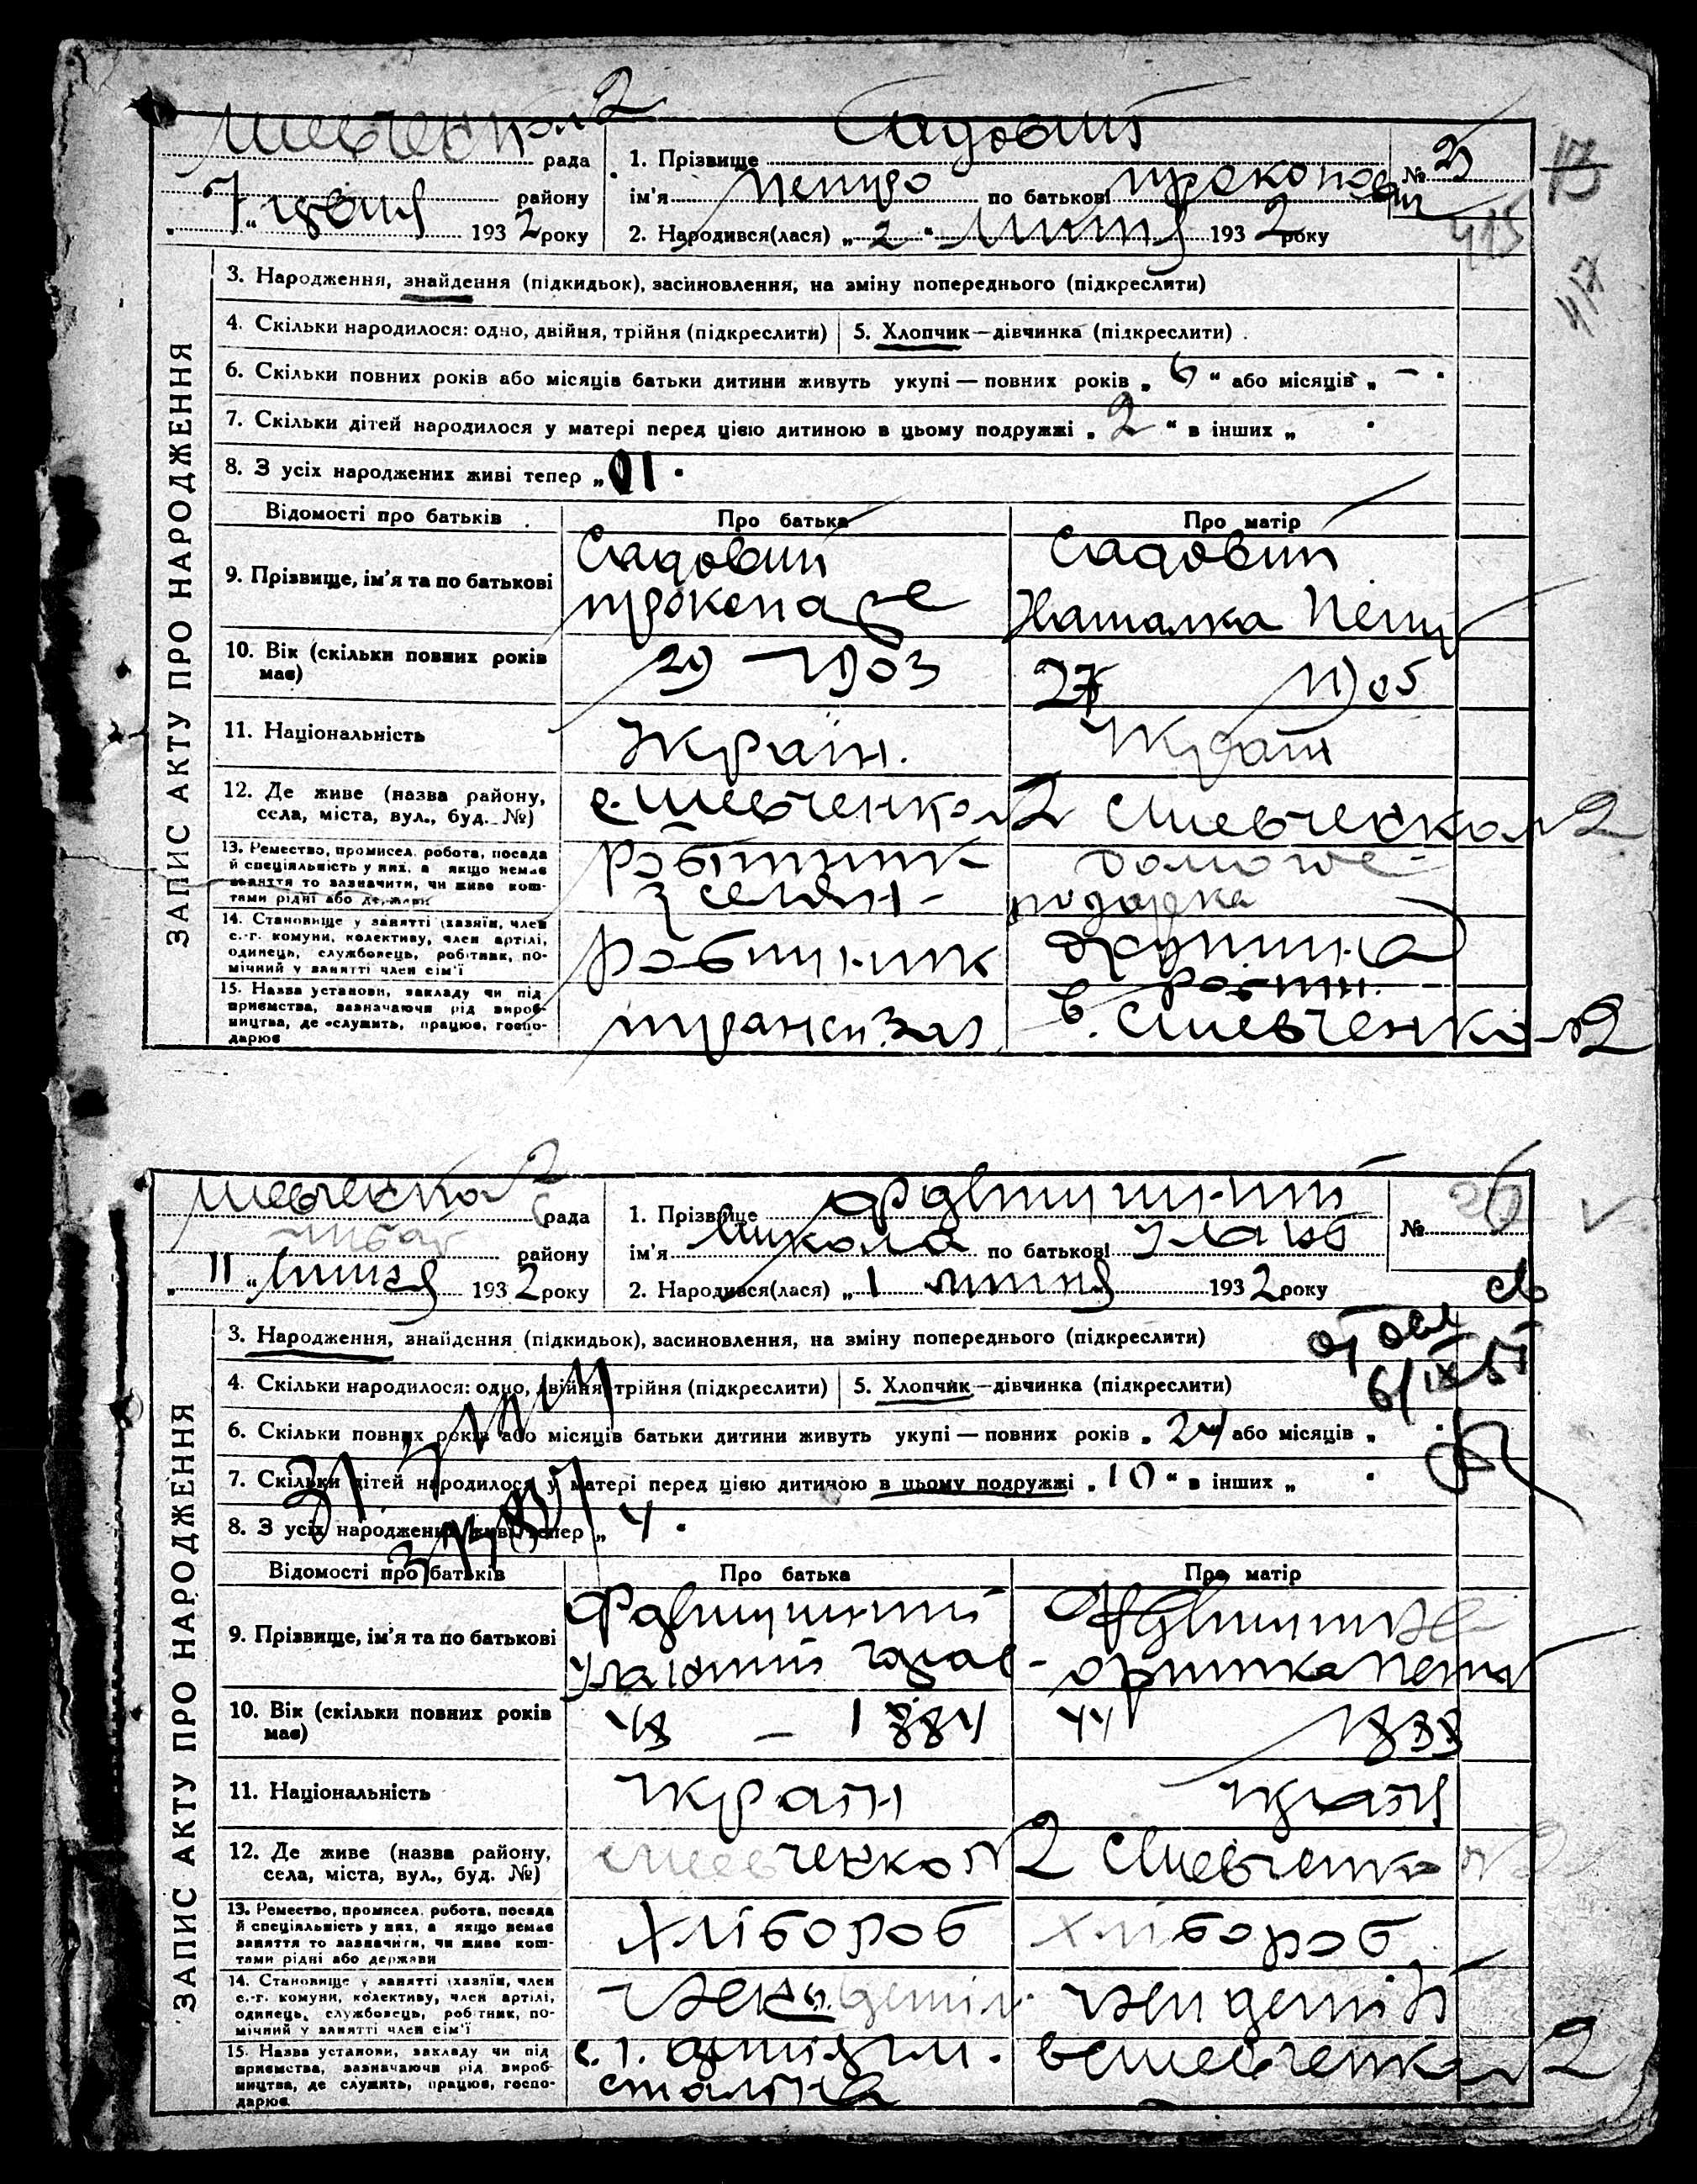 Шевченко №2 рада
району
7 " червня 1932 року
1. Прізвище Садовий
ім'я Петро по батькові Прокопович
№ 25
2. Народився(лася) „ 2 " 1932 року
415
417
ЗАПИС АКТУ ПРО НАРОДЖЕННЯ
3. Народження, знайдення (підкидьок), засиновлення, на зміну попереднього (підкреслити)
4. Скільки народилося: одно, двійня, трійня (підкреслити) 5. Хлопчик—дівчинка (підкреслити)
6. Скільки повних років або місяців батьки дитини живуть укупі — повних років „ 6 " або місяців „ — "
7. Скільки дітей народилося у матері перед цією дитиною в цьому подружжі „ 2 " в інших „ "
8. З усіх народжених живі тепер „ 1 "
Відомості про батьків Про батька Про матір
9. Прізвище, ім'я та по батькові
Садовий Садовий
Прокоп Наталка Петр
10. Вік (скільки повних років має) 29 — 1903 27 1905
11. Національність Україн. Україн
12. Де живе (назва району, села, міста, вул., буд. №)
с. Шевченко №2 с Шевченко №2
13. Ремество, промисел, робота, посада й спеціяльність у них, а якщо немає заняття то зазначити, чи живе коштами рідні або держави
робітник домогос-
з селян- подарка
14. Становище у занятті (хазяїн, член с.-г. комуни, колективу, член артілі, одинець, службовець, робітник, помічний у занятті член сім'ї
робітник дружина робітн.
15. Назва установи, закладу чи підприємства, зазначаючи рід виробництва, де служить, працює, господарює
в. с Шевченко №2
Шевченко 2 рада
району
11 " липня 1932 року
1. Прізвище
ім'я Микола по батькові
№ 26
2. Народився(лася) „ 1 липня 1932 року
6/IX 55
ЗАПИС АКТУ ПРО НАРОДЖЕННЯ
3. Народження, знайдення (підкидьок), засиновлення, на зміну попереднього (підкреслити)
4. Скільки народилося: одно, двійня, трійня (підкреслити) 5. Хлопчик—дівчинка (підкреслити)
6. Скільки повних років або місяців батьки дитини живуть укупі — повних років „ 24 або місяців „
7. Скільки дітей народилося у матері перед цією дитиною в цьому подружжі „ 10 " в інших „ "
8. З усіх народжених живі тепер „ 4 "
Відомості про батьків Про батька Про матір
9. Прізвище, ім'я та по батькові
Оришка Петр
10. Вік (скільки повних років має) 48 — 1884 44 1888
11. Національність Україн Україн
12. Де живе (назва району, села, міста, вул., буд. №)
с Шевченко №2 с Шевченко №2
13. Ремество, промисел, робота, посада й спеціяльність у них, а якщо немає заняття то зазначити, чи живе коштами рідні або держави
хлібороб хлібороб
14. Становище у занятті (хазяїн, член с.-г. комуни, колективу, член артілі, одинець, службовець, робітник, помічний у занятті член сім'ї
член артілі член артілі
15. Назва установи, закладу чи підприємства, зазначаючи рід виробництва, де служить, працює, господарює
с. г. артіль ім. в с Шевченко №2
Сталіна